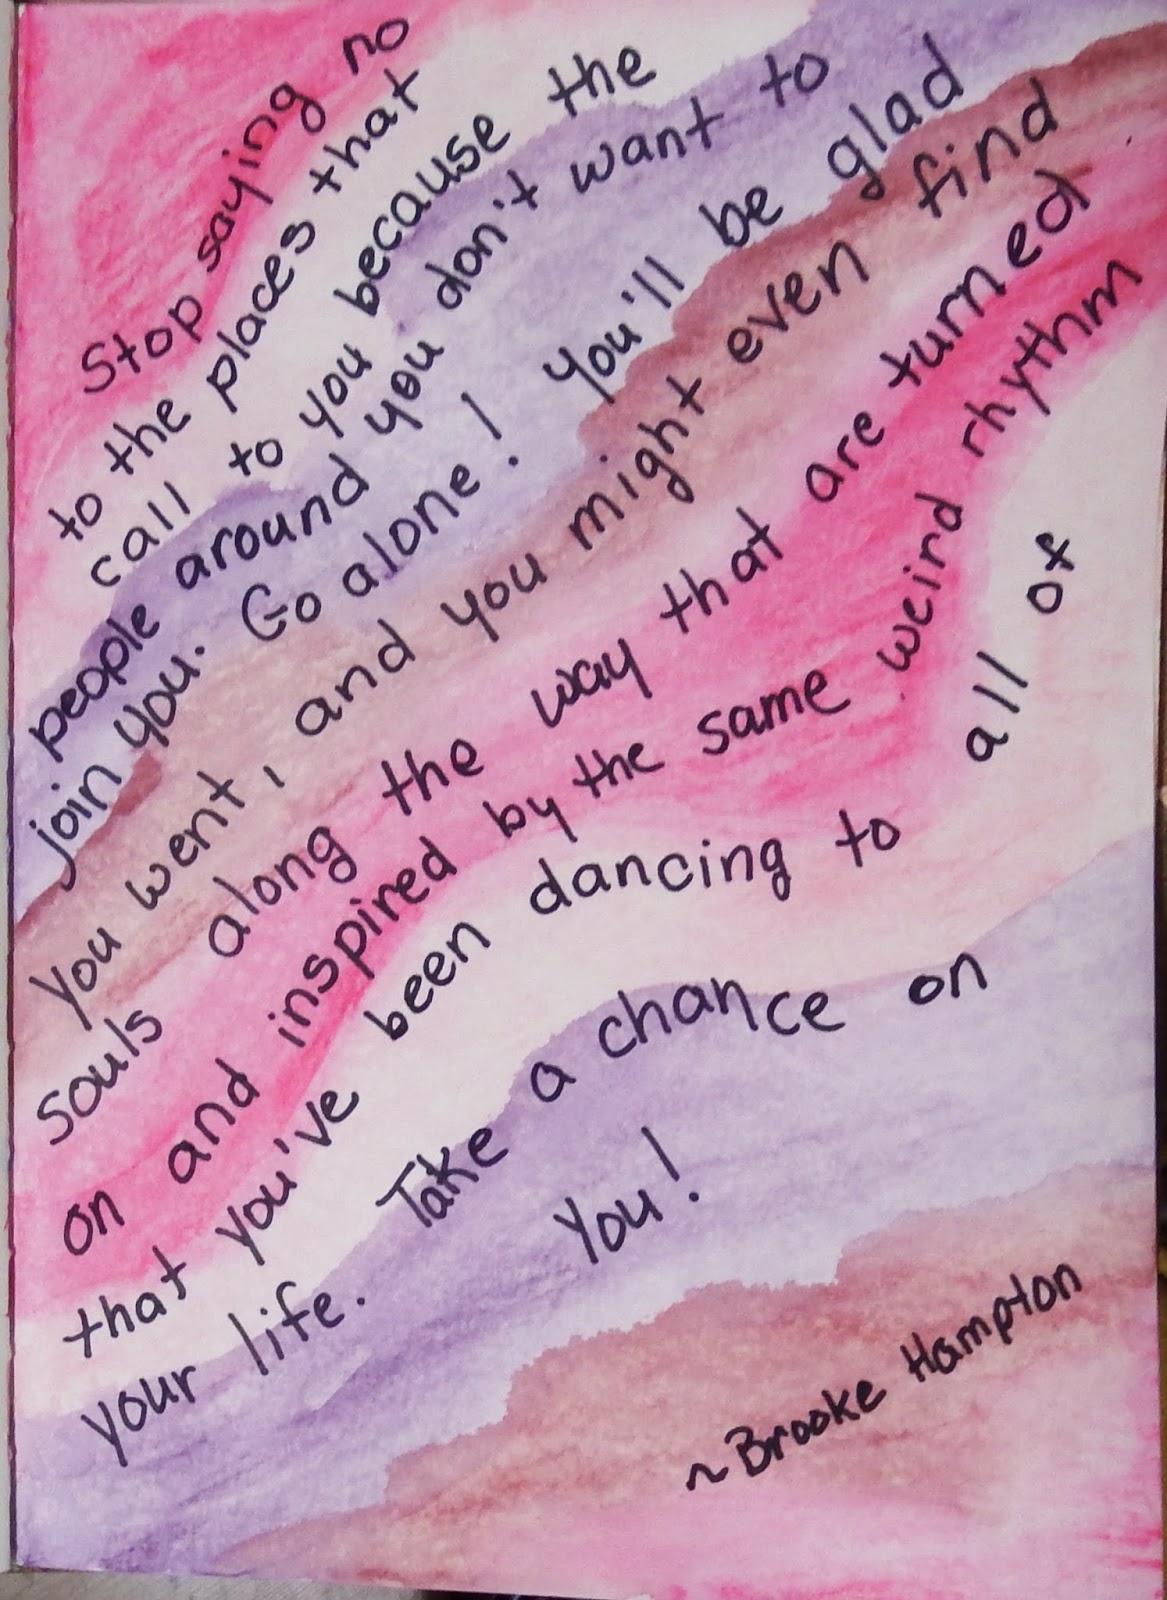 Stop saying no
to the places that
call to you because the
people around you don't want to
join you. Go alone! You'll be glad
you went, and you might even find
souls along the way that are turned
on and inspired by the same weird rhythm
that you've been dancing to all of
your life. Take a chance on
You!
~Brooke Hampton